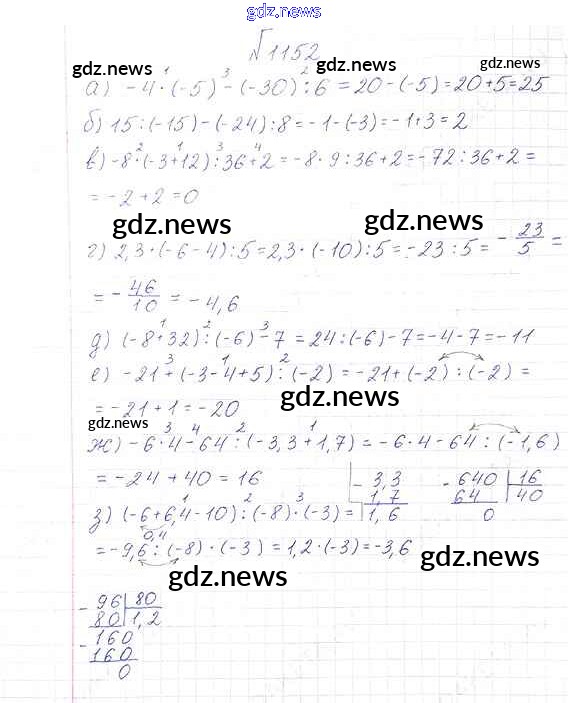 gdz.news
№1152
gdz.news gdz.news
а) -4·(-5)-(-30):6=20-(-5)=20+5=25
б) 15:(-15)-(-24):8=-1-(-3)=-1+3=2
в) -8·(-3+12):36+2=-8·9:36+2=-72:36+2=
=-2+2=0
gdz.news gdz.news
г) 2,3·(-6-4):5=2,3·(-10):5=-23:5=-23/5=
=-46/10=-4,6
д) (-8+32):(-6)-7=24:(-6)-7=-4-7=-11
е) -21+(-3-4+5):(-2)=-21+(-2):(-2)=
=-21+1=-20
gdz.news
gdz.news
ж) -6·4-64:(-3,3+1,7)=-6·4-64:(-1,6)
=-24+40=16
- 3,3 - 640 16
1,7 64 40
1,6 0
з) (-6+6,4-10):(-8)·(-3)=
0,4
=-9,6:(-8)·(-3)=1,2·(-3)=-3,6
gdz.news
gdz.news
- 96 80
80 1,2
- 160
160
0